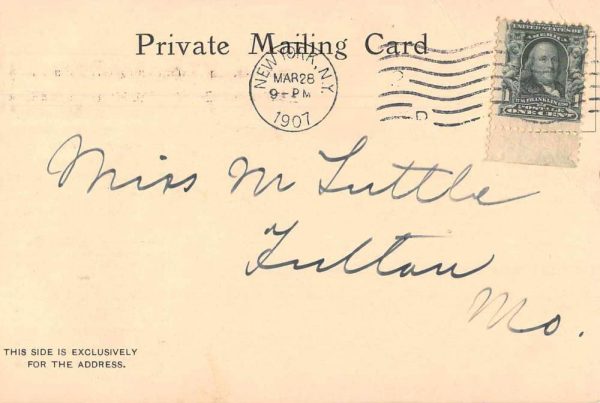 Private Mailing Card
NEW YORK, N.Y.
MAR 28
9 - PM
1907
D
UNITED STATES OF
AMERICA
FRANKLIN
ONE CENT
Miss M Tuttle
Fulton
Mo.
THIS SIDE IS EXCLUSIVELY
FOR THE ADDRESS.